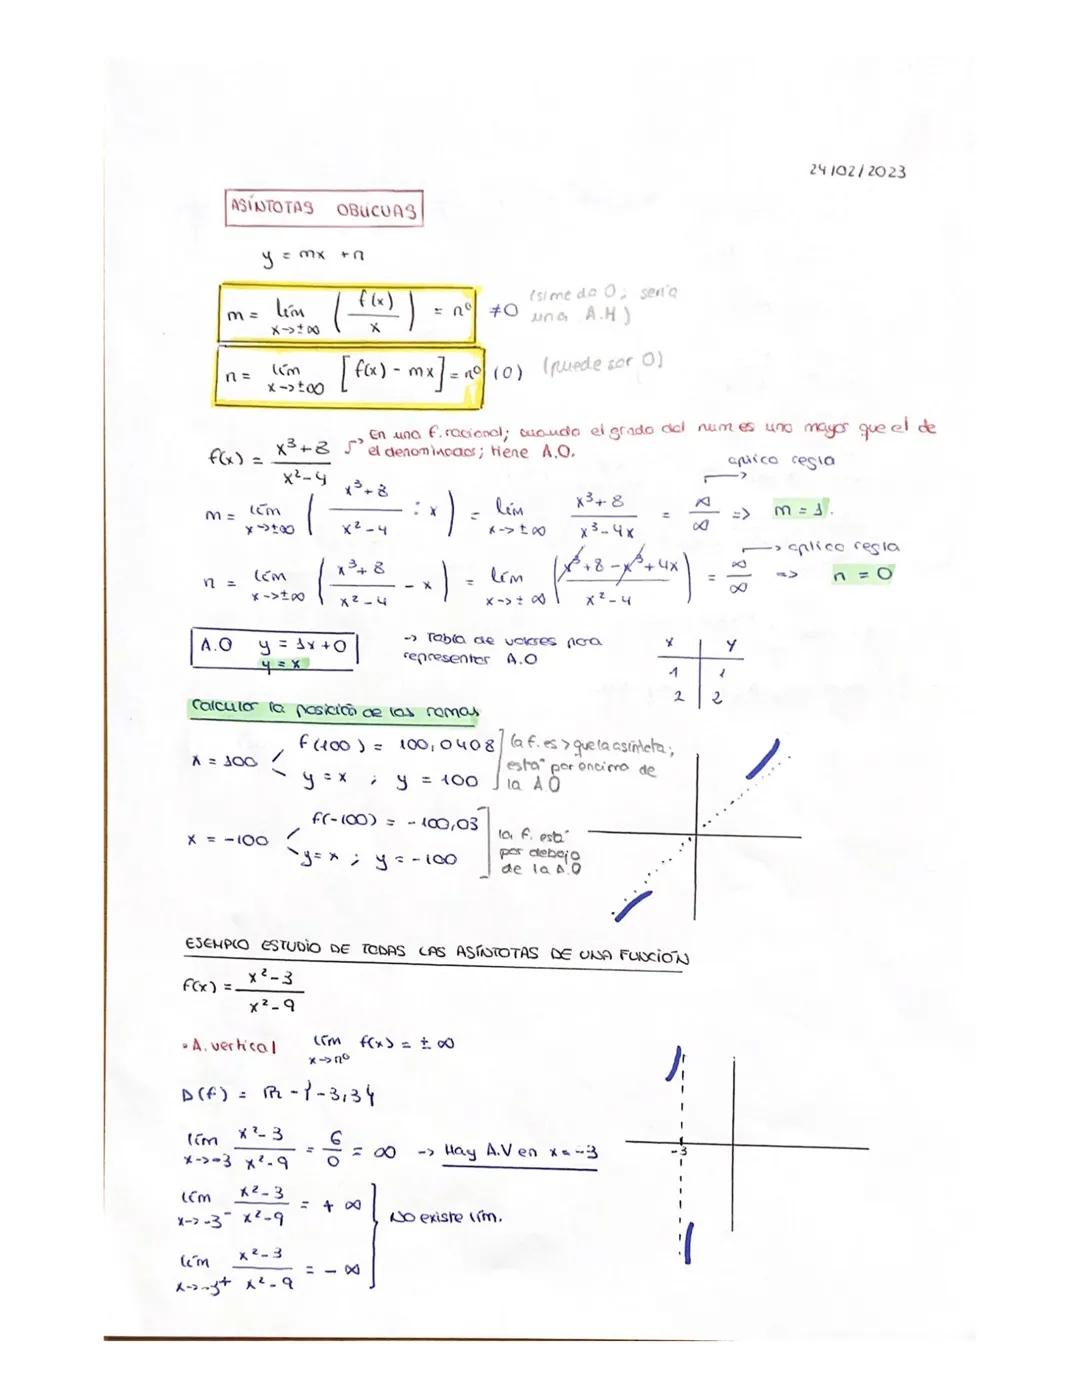 24/02/2023
ASÍNTOTAS OBLICUAS
y = mx + n
m = lím x->±∞ ( f(x) / x ) = nº ≠0 (si me da 0; sería una A.H)
n = lím x->±∞ [ f(x) - mx ] = nº (0) (puede ser 0)
En una f. racional; cuando el grado del num es uno mayor que el de
f(x) = x³+8 / x²-4 el denominador; tiene A.O.
aplico regla
m = lím x->±∞ ( x³+8 / x²-4 : x ) = lím x->±∞ x³+8 / x³-4x = ∞/∞ => m = 1.
aplico regla
n = lím x->±∞ ( x³+8 / x²-4 - x ) = lím x->±∞ ( x³+8-x³+4x / x²-4 ) = ∞/∞ => n = 0
A.O y = 1x+0
y = x
-> Tabla de valores para
representar A.O
x | y
1 | 1
2 | 2
Calcular la posición de las ramas
x = 100
f(100) = 100,0408
y = x ; y = 100
la f. es > que la asíntota;
está por encima de
la A.O
x = -100
f(-100) = -100,03
y = x ; y = -100
la f. está
por debajo
de la A.O
EJEMPLO ESTUDIO DE TODAS LAS ASÍNTOTAS DE UNA FUNCIÓN
f(x) = x²-3 / x²-9
• A. vertical lím x->nº f(x) = ± ∞
D(f) = ℝ - {-3,3}
lím x->-3 x²-3 / x²-9 = 6/0 = ∞ -> Hay A.V en x = -3
-3
lím x->-3⁻ x²-3 / x²-9 = + ∞
No existe lím.
lím x->-3⁺ x²-3 / x²-9 = - ∞